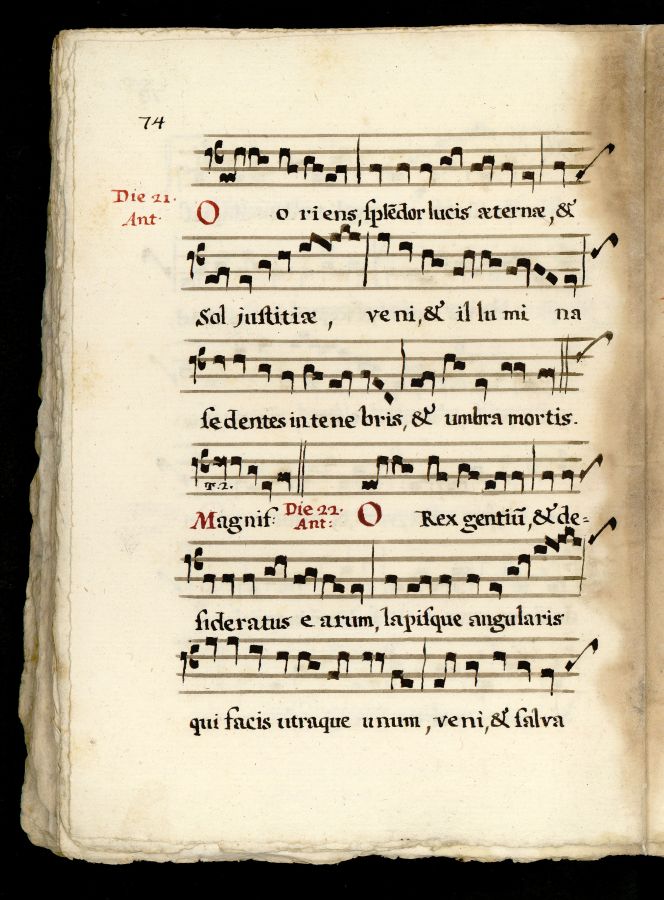 74
Die 21.
Ant.
O oriens, splẽdor lucis æternæ, &
Sol justitiæ, veni, & illumina
sedentes in tenebris, & umbra mortis.
T. 2.
Magnif: Die 22. Ant: O Rex gentiũ, & de=
sideratus earum, lapisque angularis
qui facis utraque unum, veni, & salva